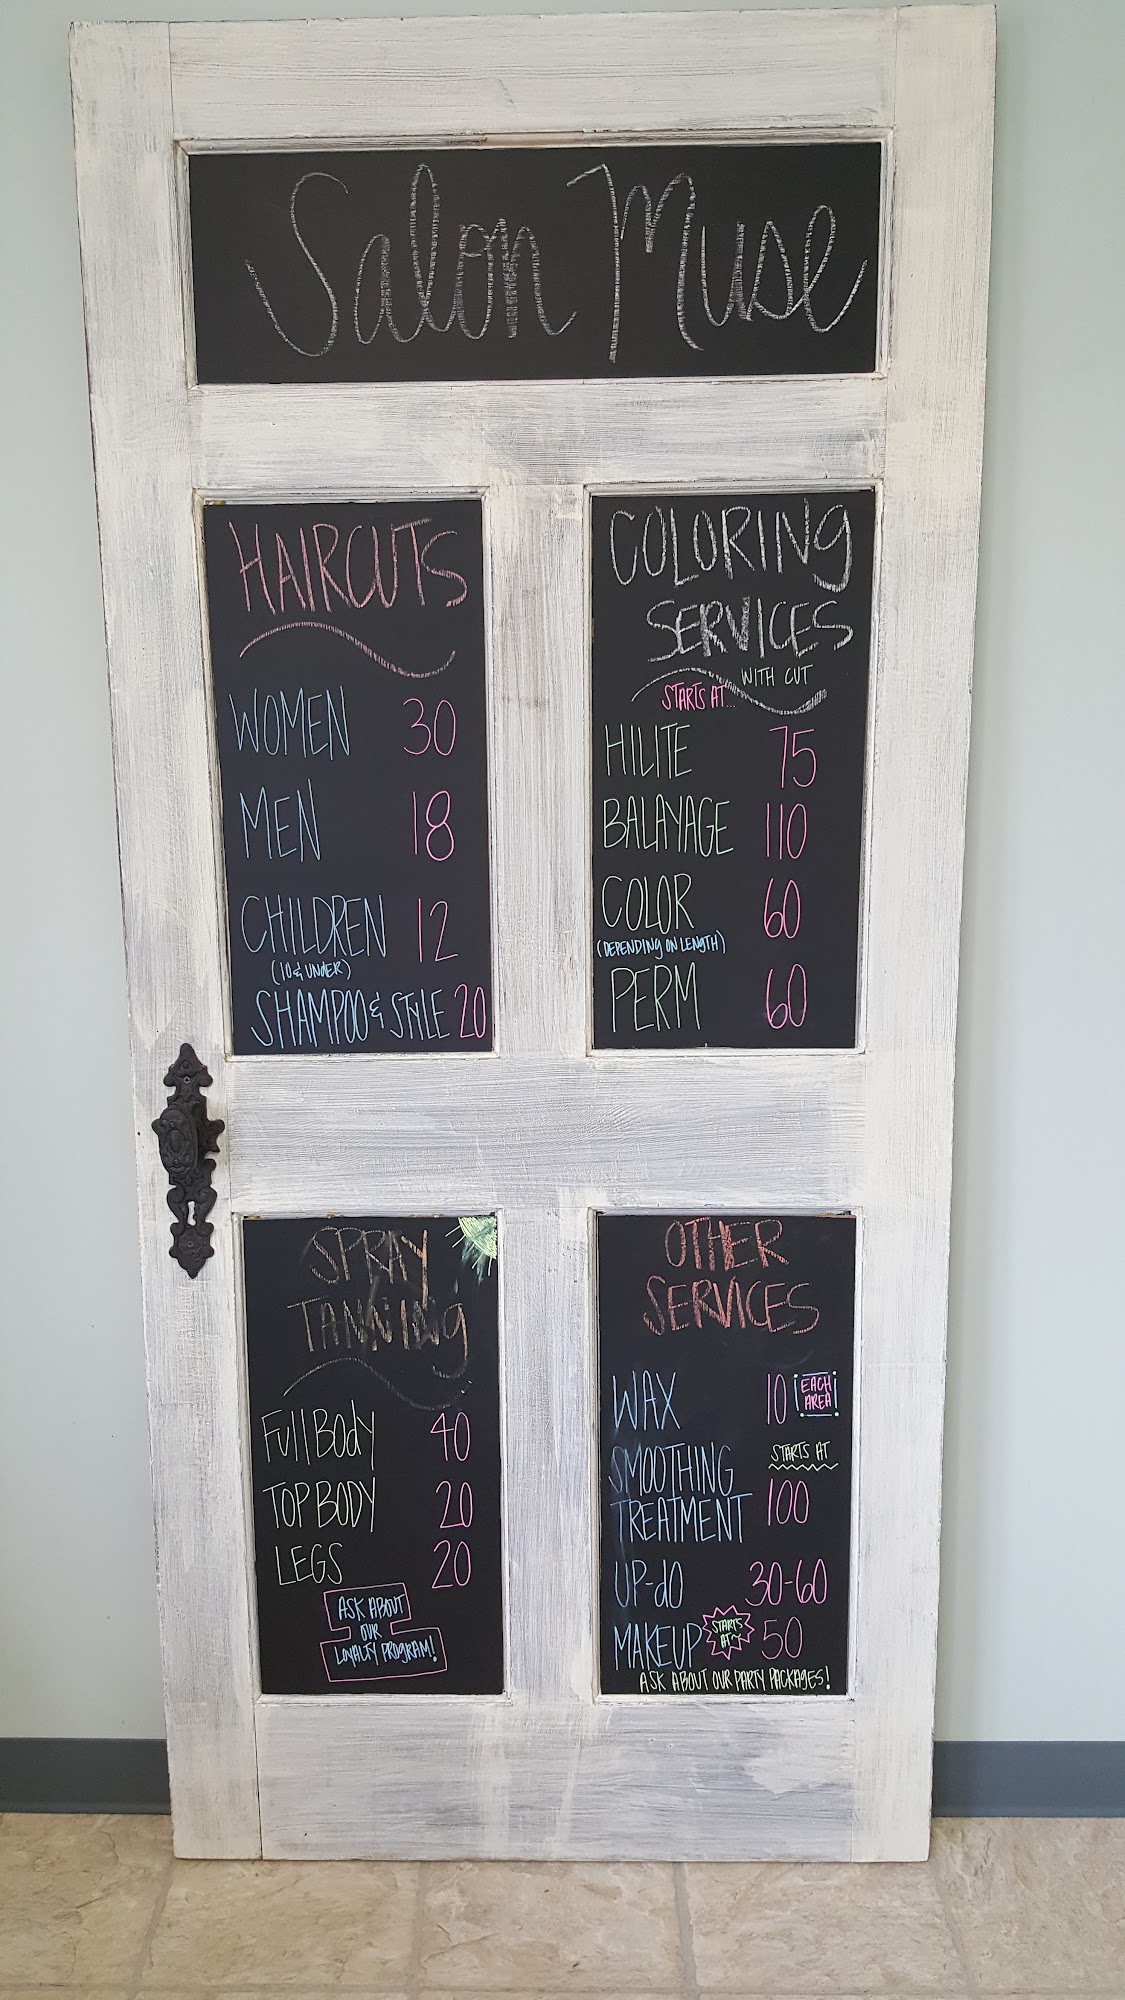 Salon Muse
HAIRCUTS
WOMEN 30
MEN 18
CHILDREN 12
(10 & UNDER)
SHAMPOO & STYLE 20
COLORING
SERVICES
WITH CUT
STARTS AT...
HILITE 75
BALAYAGE 110
COLOR 60
(DEPENDING ON LENGTH)
PERM 60
SPRAY
TANNING
Full Body 40
TOP BODY 20
LEGS 20
ASK ABOUT
OUR
LOYALTY PROGRAM!
OTHER
SERVICES
WAX 10 EACH
AREA
SMOOTHING STARTS AT
TREATMENT 100
UP-do 30-60
MAKEUP STARTS
AT~ 50
ASK ABOUT OUR PARTY PACKAGES!